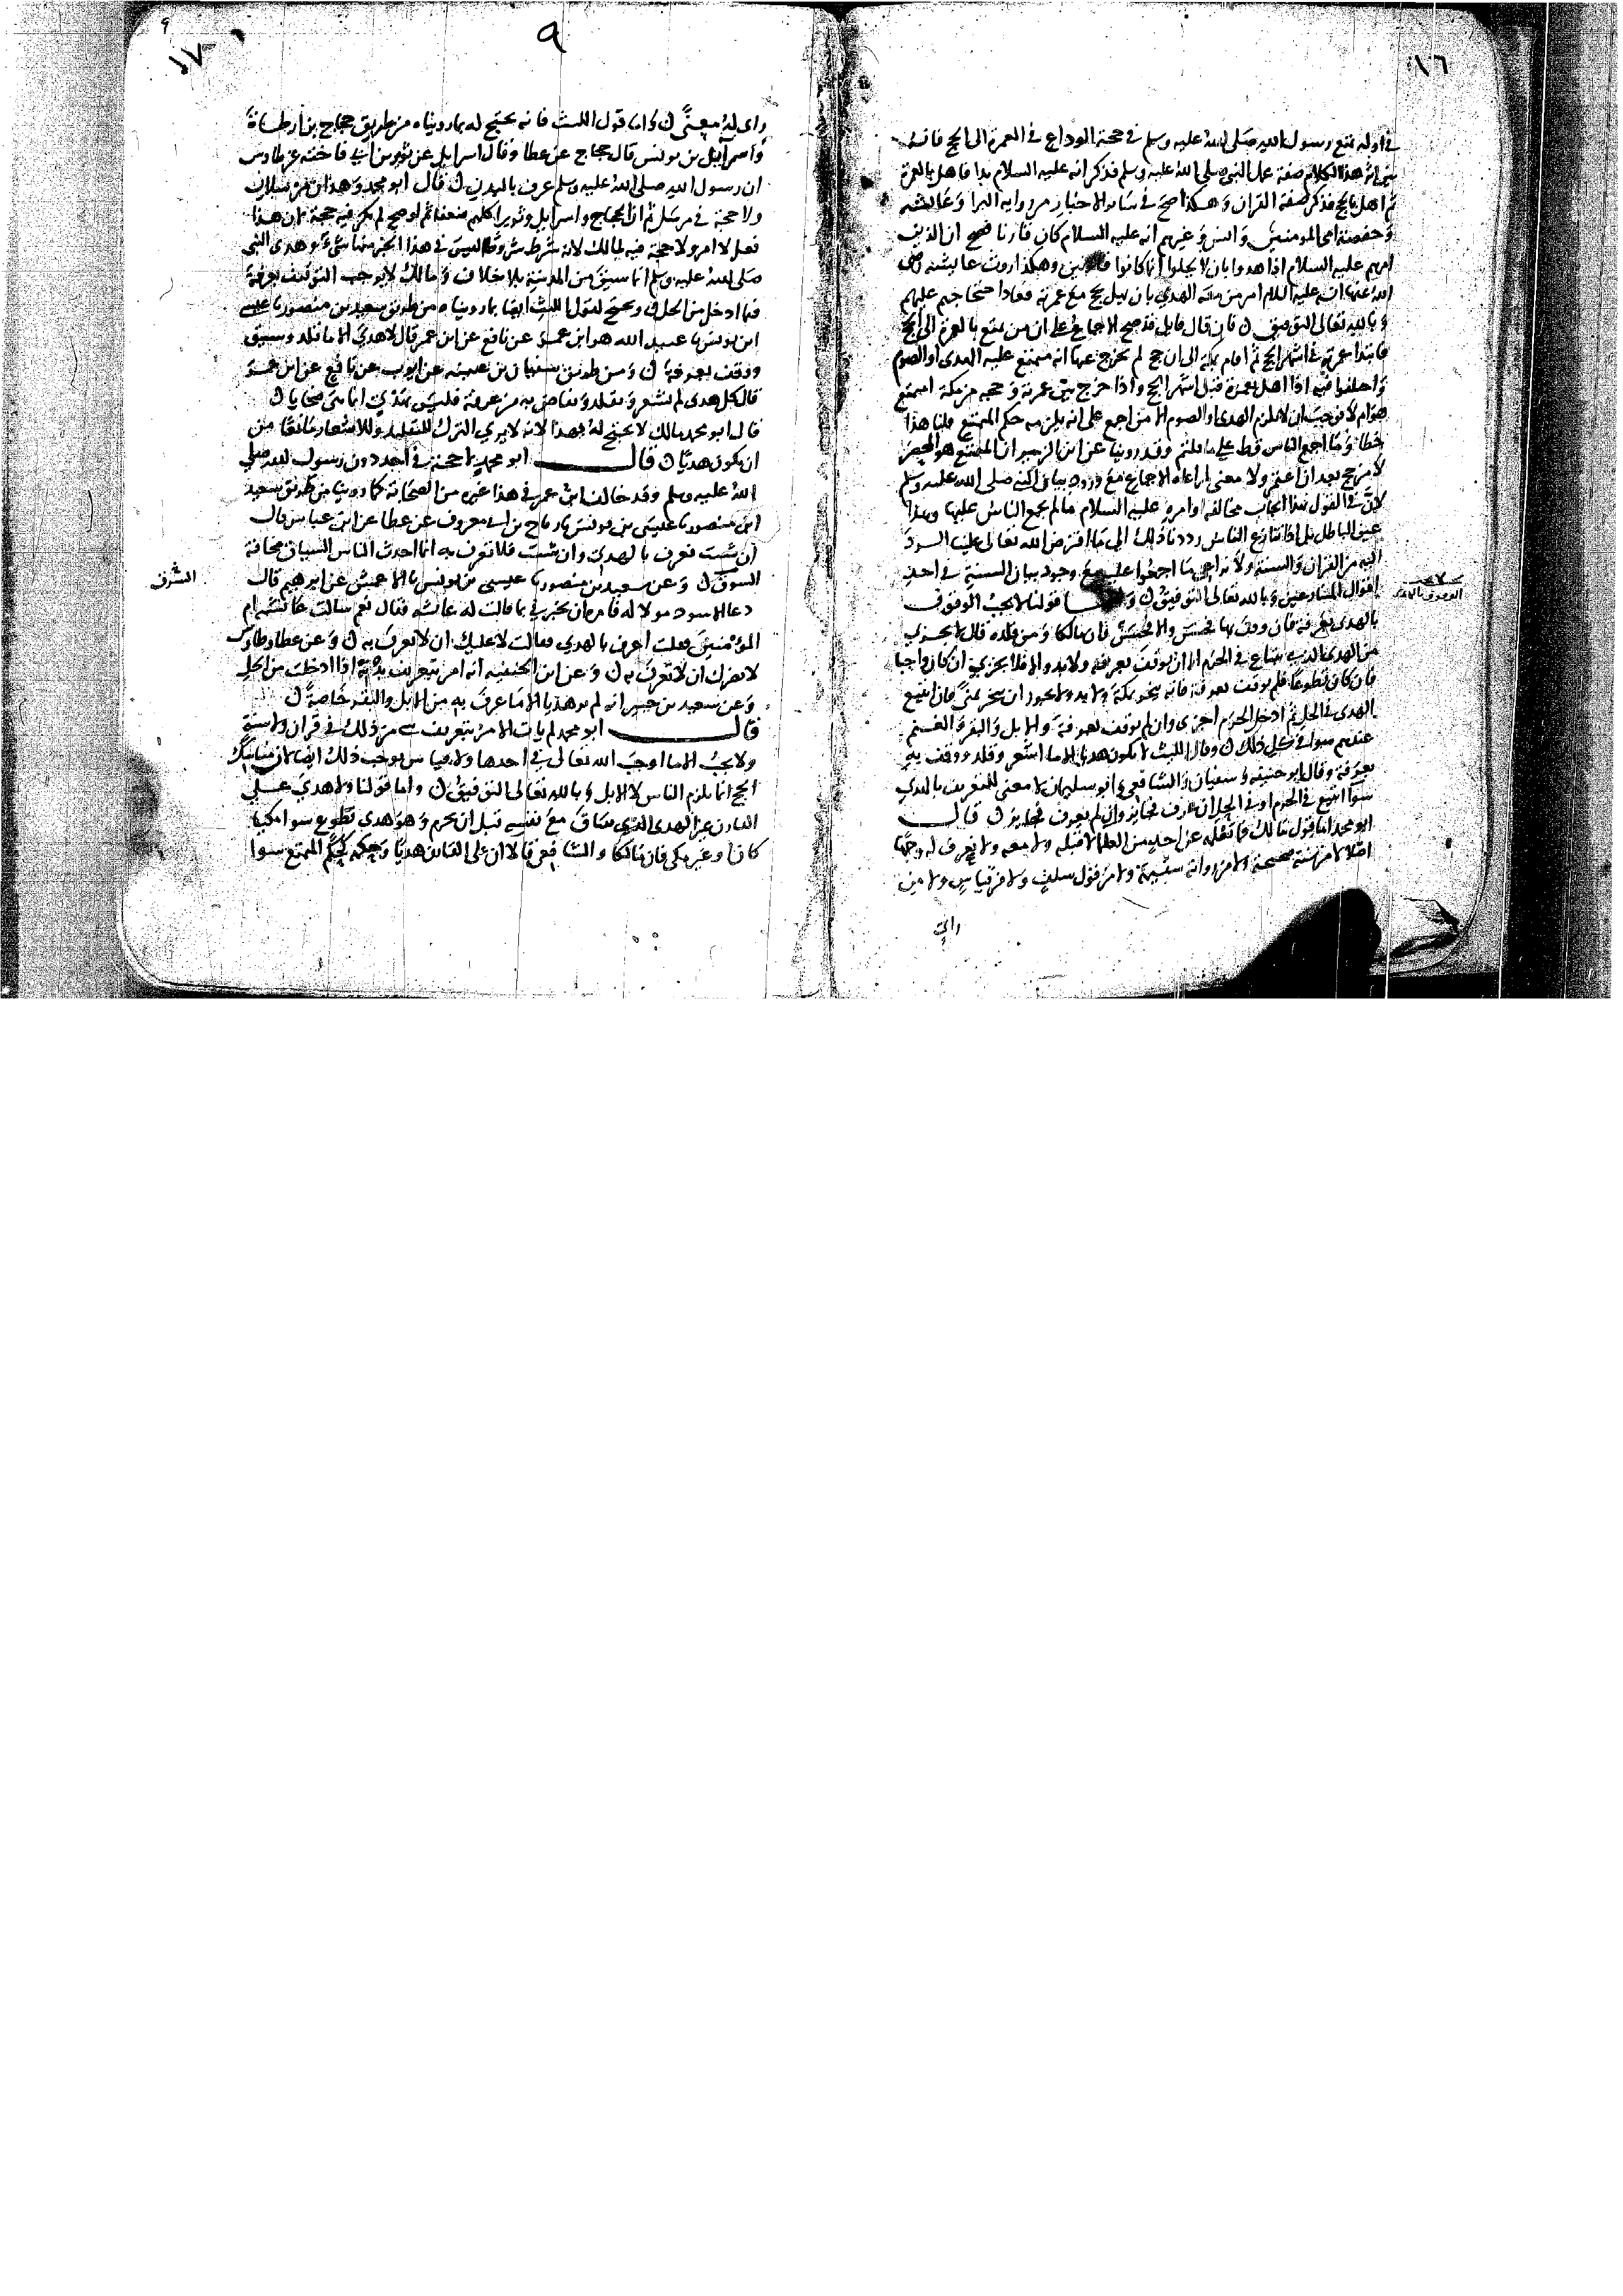 ١٦
في اوله تمتع رسول الله صلى الله عليه وسلم في حجة الوداع في العمرة الى الحج فانه
هذا الكلام صفة عمل النبي صلى الله عليه وسلم فذكر انه عليه السلام بدا فاهل بالعمرة
ثم اهل بالحج فذكر صفة القران وهكذا صح في سائر الاخبار من رواية البرا وعائشة
وحفصة امي المومنين وانس وغيرهم انه عليه السلام كان قارنا فصح ان الذين
امرهم عليه السلام اذا هدوا بان لا يحلوا انما كانوا قارنين وهكذا روت عايشة رضي
الله عنها انه عليه السلام امر من معه الهدي بان يهل بحج مع عمرة فعاد احتجاجهم عليهم
وبالله تعالى التوفيق ن فان قال قايل قد صح الاجماع على ان من تمتع بالعمرة الى الحج
فابتدا عمرته في اشهر الحج ثم اقام بمكة الى ان حج لم يخرج عنها انه متمتع عليه الهدى او الصوم
واختلفوا فيه اذا اهل بعمرة قبل اشهر الحج واذا خرج بين عمرته وحجه من مكة امتمتع
هو ام لا فوجب ان لا يلزم الهدى او الصوم الا من اجمع على انه يلزمه حكم المتمتع قلنا هذا
خطا وما اجمع الناس قط على ما قلتم وقد روينا عن ابن الزبير ان المتمتع هو المحصر
لا من حج بعد ان اعتمر ولا معنى لمراعاة الاجماع مع ورود بيان النبي صلى الله عليه وسلم
لان في القول بهذا ايجاب مخالفة اوامره عليه السلام ما لم يجمع الناس عليها وهذا
عين الباطل بل اذا تنازع الناس رددنا ذلك الى ما افترض الله تعالى علينا الرد
اليه من القران والسنة ولا نراعي ما اجمعوا عليه مع وجود بيان السنة في احد
اقوال المتنازعين وبالله تعالى التوفيق ن واما قولنا لا يجب الوقوف
بالهدى بعرفة فان وقف بها فحسن والا فحسن فان مالكا ومن قلده قال لا يجزي
من الهدى الذي يبتاع في الحرم الا ان يوقف بعرفة ولا بد والا فلا يجزي ان كان واجبا
فان كان تطوعا فلم يوقف بعرفة فانه ينحر بمكة ولا بد ولا يجوز ان ينحر بمنى فان ابتيع
الهدى في الحل ثم ادخل الحرم اجزى وان لم يوقف بعرفة والابل والبقر والغنم
عندهم سوا في كل ذلك ن وقال الليث لا يكون هديا الا ما اشعر وقلد ووقف به
بعرفة وقال ابو حنيفة وسفيان والشافعي وابو سليمان لا معنى للتعريف بالهدي
سوا ابتيع في الحرم او في الحل ان عرف فجايز وان لم يعرف فجايز ن قال
ابو محمد اما قول مالك فما نعلمه عن احد من العلما قبله ولا معه ولا نعرف له وجها
اصلا لا من سنة صحيحة ولا من رواية سقيمة ولا من قول سلف ولا من قياس ولا من
راي
لا يجب
الوقوف بالهدي
٩
١٧
٩
راى له معنى ن واما قول الليث فانه يحتج له بما رويناه من طريق حجاج بن ارطاة
واسرائيل بن يونس قال حجاج عن عطا وقال اسرايل عن ثوير بن ابي فاختة عن طاوس
ان رسول الله صلى الله عليه وسلم عرف بالبدن ن قال ابو محمد وهذان مرسلان
ولا حجة في مرسل ثم ان الحجاج واسرايل وثويرا كلهم ضعفا ثم لو صح لم يكن فيه حجة لان هذا
فعل لا امر ولا حجة فيه لمالك لانه شرط شروطا ليس في هذا الخبر منها شيء وهدى النبي
صلى الله عليه وسلم انما سيق من المدينة بلا خلاف ومالك لا يوجب التوقيف بعرفة
فيما ادخل من الحل ن ويحتج لقول الليث ايضا بما رويناه من طريق سعيد بن منصور نا عيسى
ابن يونس نا عبيد الله هو ابن عمر عن نافع عن ابن عمر قال لا هدي الا ما قلد وسيق
ووقف بعرفة ن ومن طريق سفيان بن عيينة عن ايوب عن نافع عن ابن عمر
قال كل هدى لم يشعر ويقلد ويفاض به من عرفة فليس بهدي انما هي ضحايا ن
قال ابو محمد مالك لا يحتج له بهذا لانه لا يري الترك للتقليد وللاشعار مانعا من
ان يكون هديا ن قال ابو محمد لا حجة في احد دون رسول الله صلى
الله عليه وسلم وقد خالف ابن عمر في هذا غيره من الصحابة كما روينا من طريق سعيد
ابن منصور نا عيسى بن يونس نا رباح بن ابي معروف عن عطا عن ابن عباس قال
ان شئت فعرف بالهدي وان شئت فلا تعرف به انما احدث الناس السياق مخافة
السوق ن وعن سعيد بن منصور نا عيسى بن يونس نا الاعمش عن ابرهيم قال
دعا الاسود مولا له فامره ان يخبرني بما قالت له عائشة فقال نعم سالت عائشة ام
المؤمنين فقلت اعرف بالهدي فقالت لا عليك ان لا تعرف به ن وعن عطا وطاوس
لا يضرك ان لا تعرف به ن وعن ابن الحنفية انه امر بتعريف بدنة اذا ادخلت من الحل
وعن سعيد بن جبير انه لم ير هديا الا ما عرف به من الابل والبقر خاصة ن
قال ابو محمد لم يات الامر بتعريف شيء من ذلك في قران ولا سنة
ولا يجب الا ما اوجب الله تعالى في احدها ولا قياس يوجب ذلك ايضا لان مناسك
الحج انما تلزم الناس لا الابل وبالله تعالى التوفيق ن واما قولنا ولا هدي على
القارن غير الهدى الذي ساق مع نفسه قبل ان يحرم وهو هدى تطوع سوا مكيا
كان او غير مكي فان مالكا والشافعي قالا ان على القارن هديا وحكمه كحكم المتمتع سوا
السرف